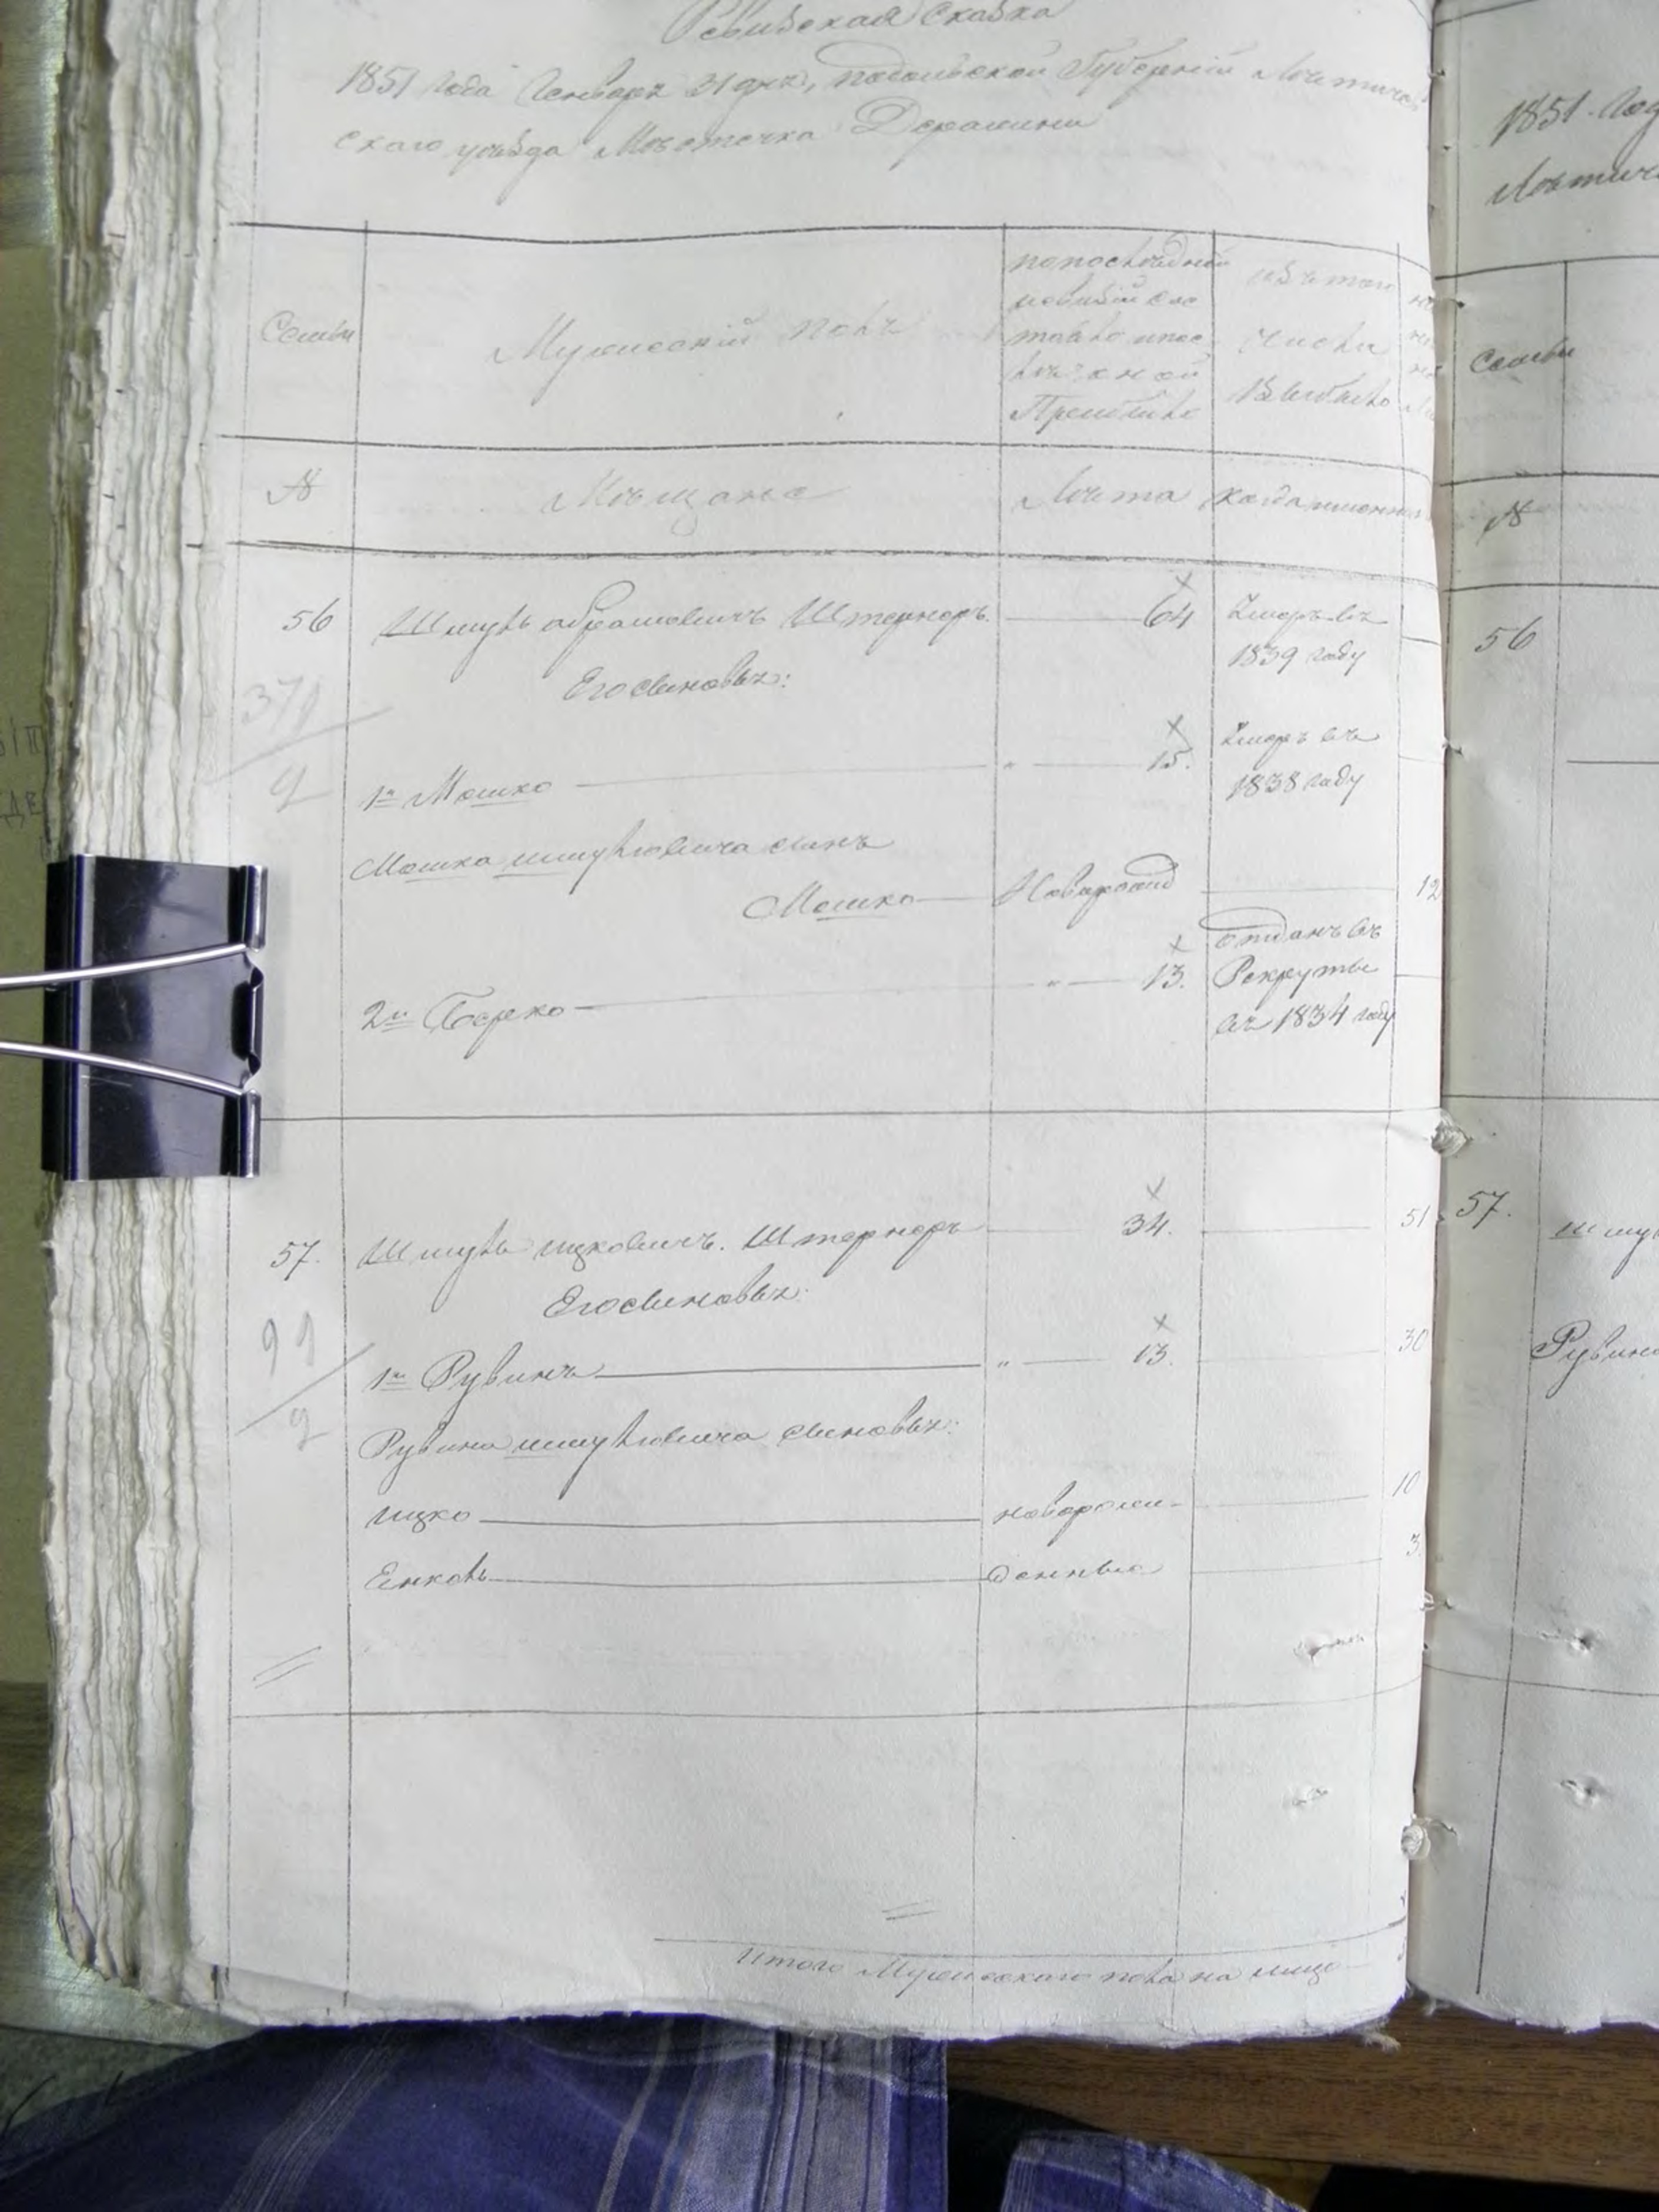 Ревизская сказка
1851 года Генваря 31 дня, Подольской Губернии Летичев
скаго уезда Местечка Деражни
Семьи
Мужеский полъ
по последней
ревизии сос
тояло и пос
ле оной
Прибыло
изъ того
числа
Выбыло
№
Мещане
Лета
когда именно
56
Шмуль Абрамовичъ Штернеръ
64
Умеръ въ
1839 году
Его сыновья:
1й Мошко
15.
Умеръ въ
1838 году
Мошка Шмулювича сынъ
Мошко
Новорожд
12
2й Берко
13.
отданъ въ
Рекруты
въ 1834 году
57.
Шмуль Ицковичъ. Штернеръ
34.
51
Его сыновья:
1й Рувинъ
13.
30
Рувина Шмулювича сыновья:
Ицко
новорож-
10
Енколь
денные
3
Итого Мужескаго пола на лицо
1851 год
Летиче
Семьи
№
56
57.
Шмул
Рувина